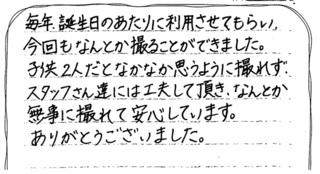 毎年、誕生日のあたりに利用させてもらい、
今回もなんとか撮ることができました。
子供2人だとなかなか思うように撮れず、
スタッフさん達には工夫して頂き、なんとか
無事に撮れて安心しています。
ありがとうございました。